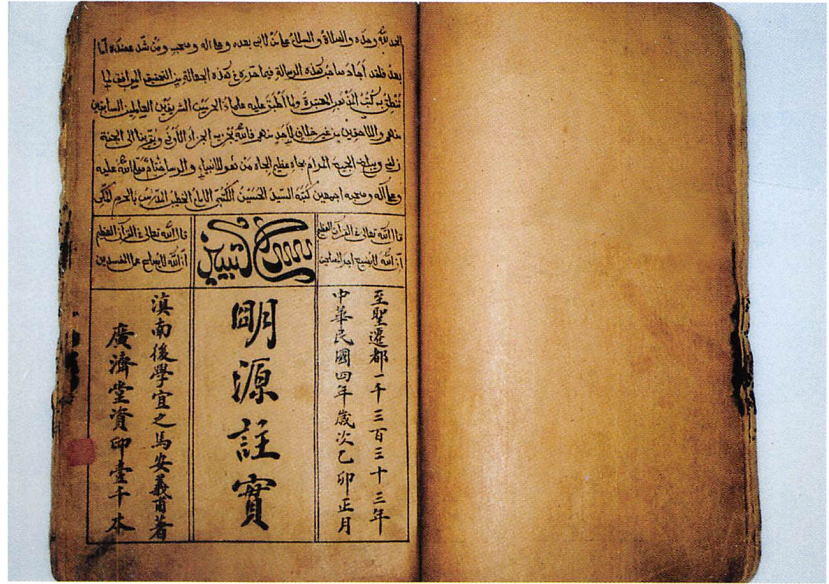 الحمد لله وحده والصلاة والسلام على من لا نبي بعده وعلى اله وصحبه ومن شد عضده اما
بعد فلقد أجاد صاحب هذه الرسالة فيما حرره في هذه العجالة من التحقيق الموافق لما
تنطق به كتب المذاهب المعتبرة ولما أطبق عليه علماء الحرمين الشريفين العاملين السابقين
منهم واللاحقين من غير خلاف لأحد منهم فالله يجزيه الجزاء الأوفى ويقربنا الى الجنة
زلفى المرام بجاه عظيم الجاه من هو للانبياء والرسل ختام صلى الله عليه
وعلى اله وصحبه اجمعين كتبه السيد الحسين الامام الخطيب المدرس بالحرم المكي
قال الله تعالى في القرآن العظيم
ان الله لا يضيع اجر المحسنين
قال الله تعالى في القرآن العظيم
ان الله لا يصلح عمل المفسدين
至聖遷都一千三百三十三年
中華民國四年歲次乙卯正月
明源註實
滇南後學宜之馬安義甫著
廣濟堂資印壹千本